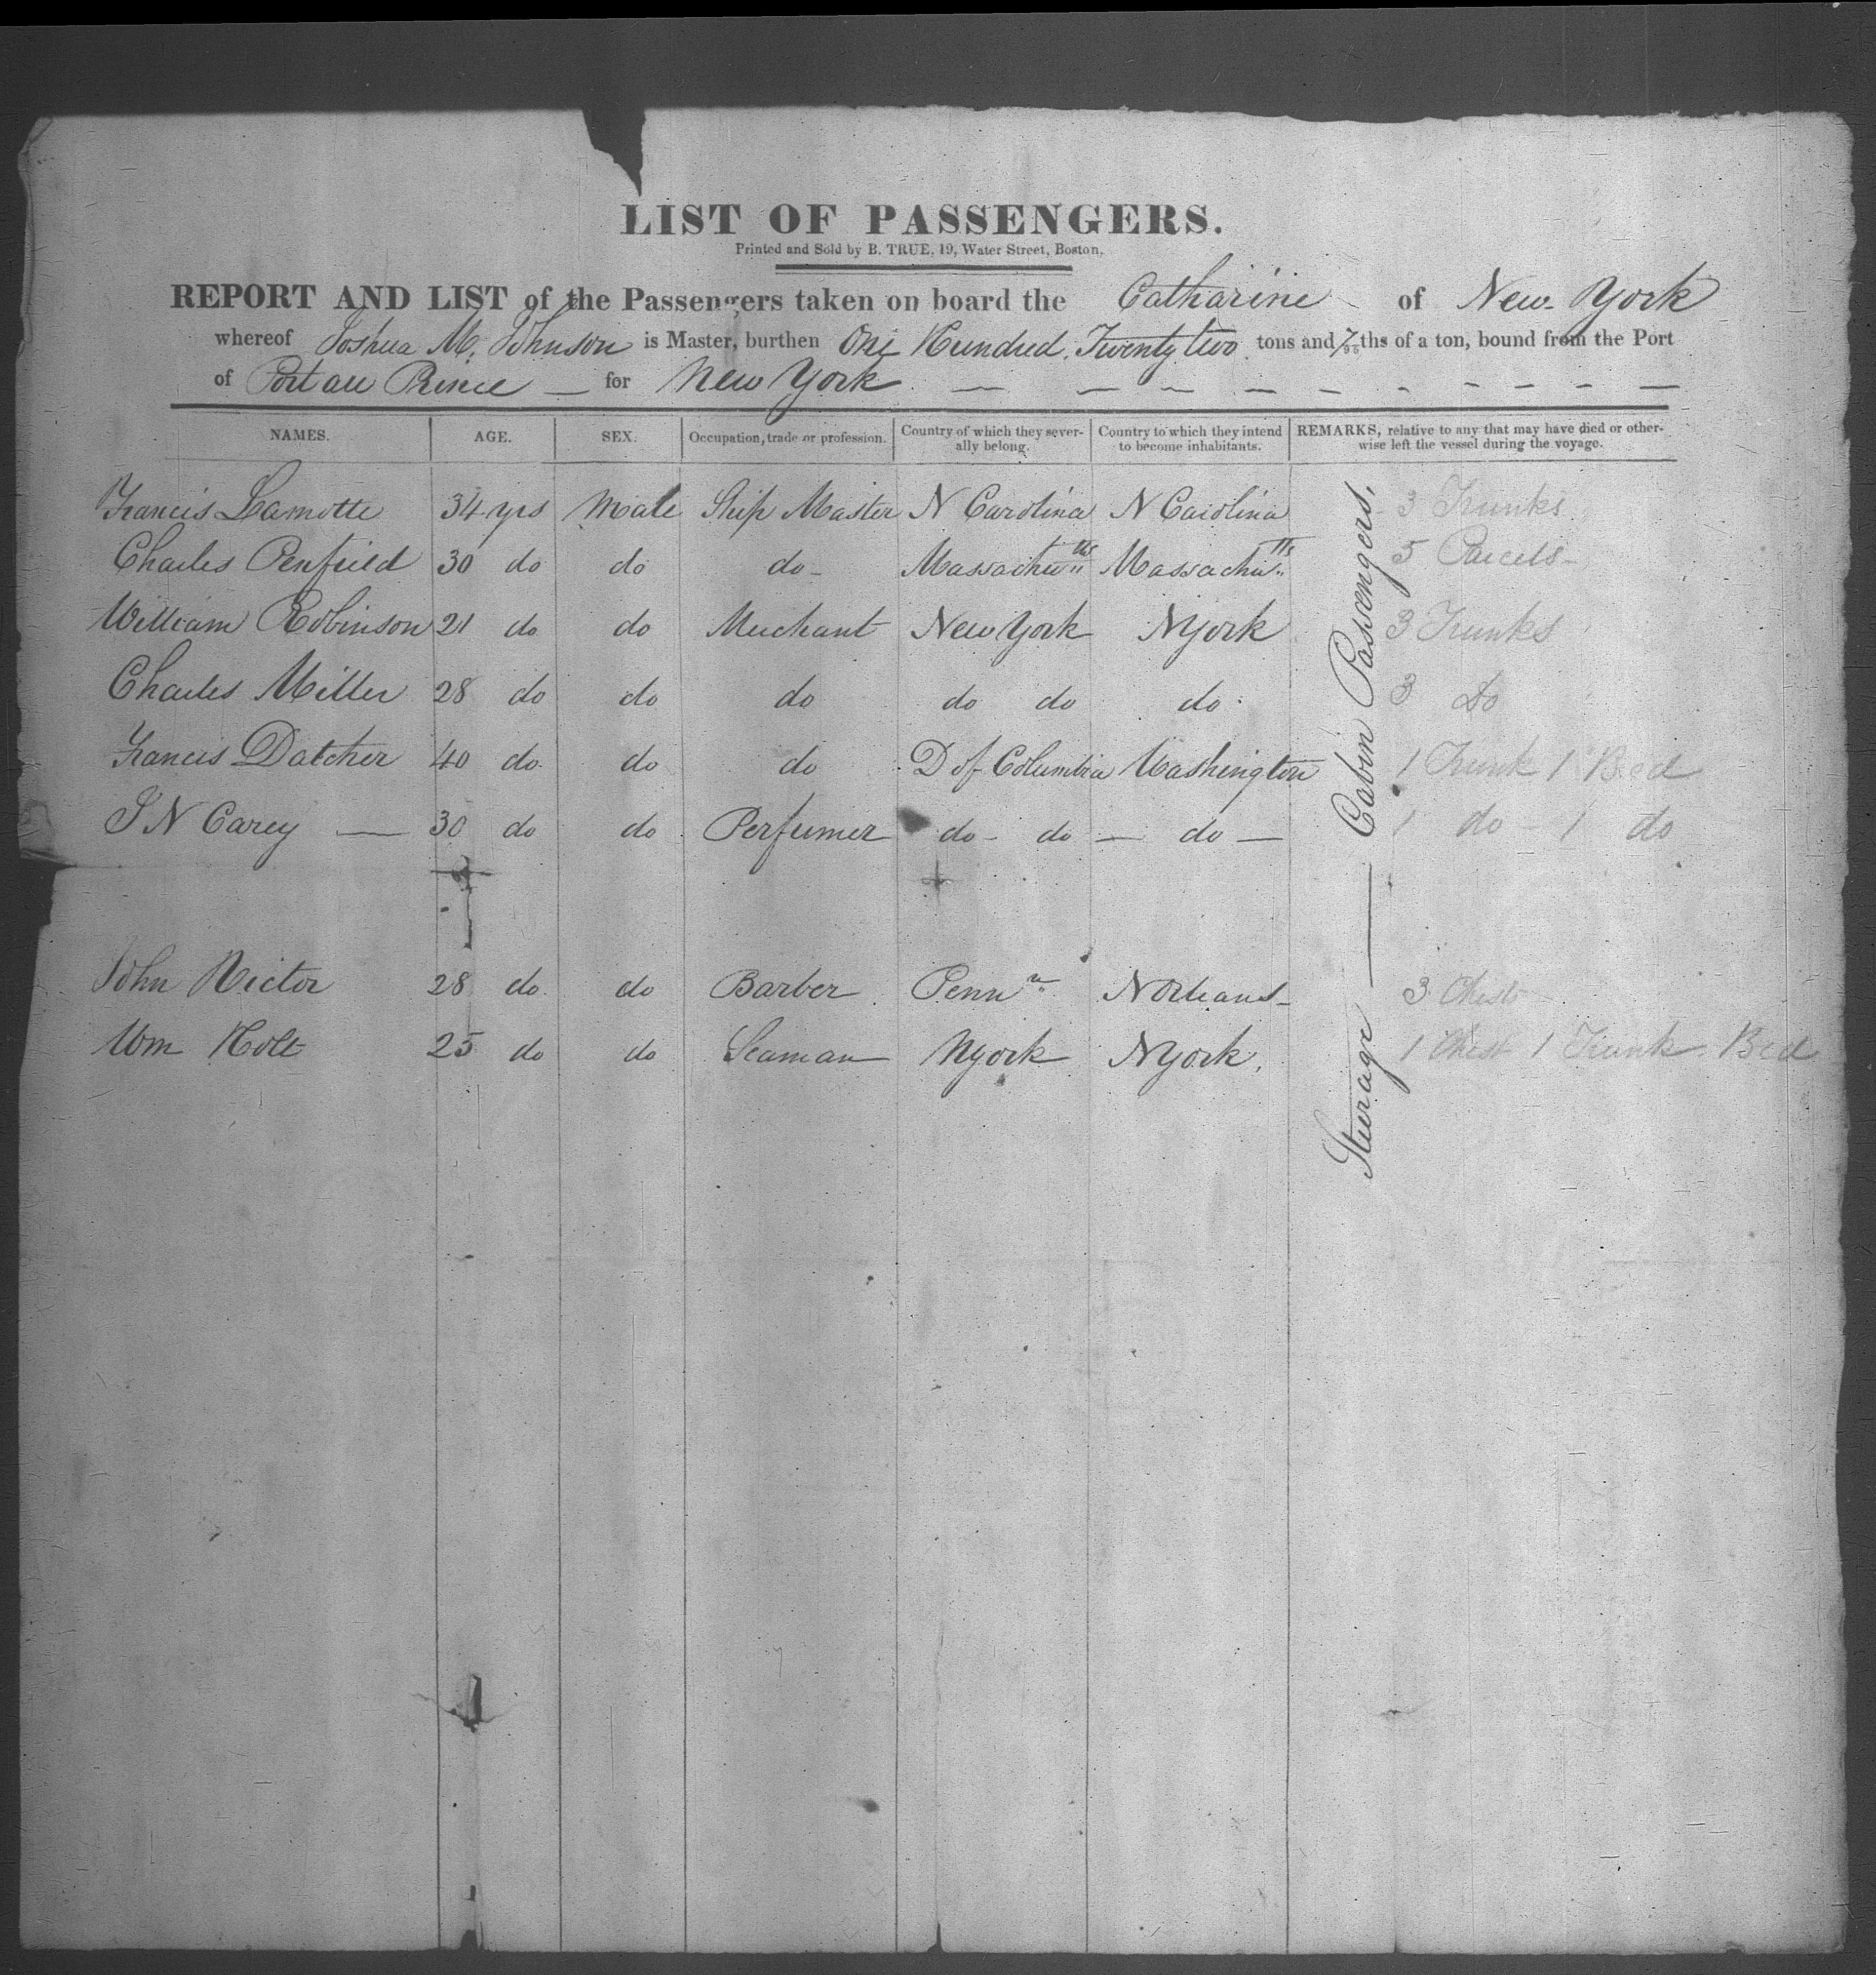 LIST OF PASSENGERS.
Printed and Sold by B. TRUE, 19, Water Street, Boston.
REPORT AND LIST of the Passengers taken on board the Catharine of New York
whereof Joshua M. Johnson is Master, burthen One Hundred Twenty two tons and 7/95 ths of a ton, bound from the Port
of Port au Prince — for New York
NAMES. AGE. SEX. Occupation, trade or profession. Country of which they severally belong. Country to which they intend to become inhabitants. REMARKS, relative to any that may have died or otherwise left the vessel during the voyage.
Francis Lamotte 34 yrs Male Ship Master N Carolina N Carolina 3 Trunks
Charles Penfield 30 do do do Massachutts Massachutts 5 Parcels
William Robinson 21 do do Merchant New York NYork 3 Trunks
Charles Miller 28 do do do do do do 3 Do
Francis Datcher 40 do do do D of Columbia Washington 1 Trunk 1 Bed
J N Carey — 30 do do Perfumer do - do — do — 1 do - 1 do
John Victor 28 do do Barber Penna NOrleans 3 Chest
Wm Holt 25 do do Seaman NYork NYork. 1 Chest 1 Trunk Bed
Cabin Passengers,
Sturage